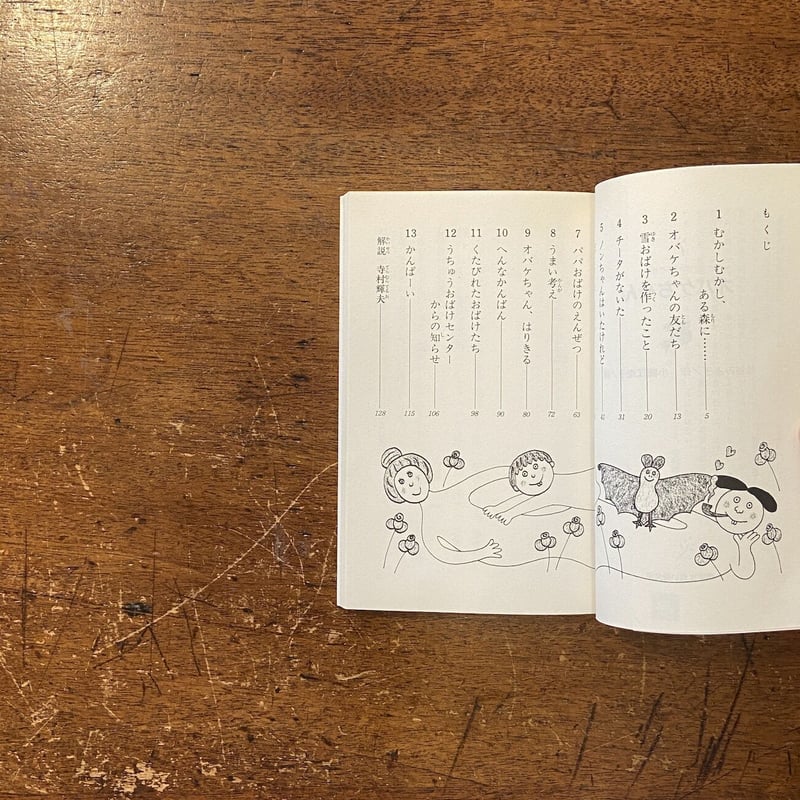 もくじ
1 むかしむかし、
ある森に……5
2 オバケちゃんの友だち 13
3 雪おばけを作ったこと 20
4 チータがないた 31
5 ノンちゃんはいたけれど
7 パパおばけのえんぜつ 63
8 うまい考え 72
9 オバケちゃん、はりきる 80
10 へんなかんばん 90
11 くたびれたおばけたち 98
12 うちゅうおばけセンター
からの知らせ 106
13 かんぱーい 115
解説 寺村輝夫 128